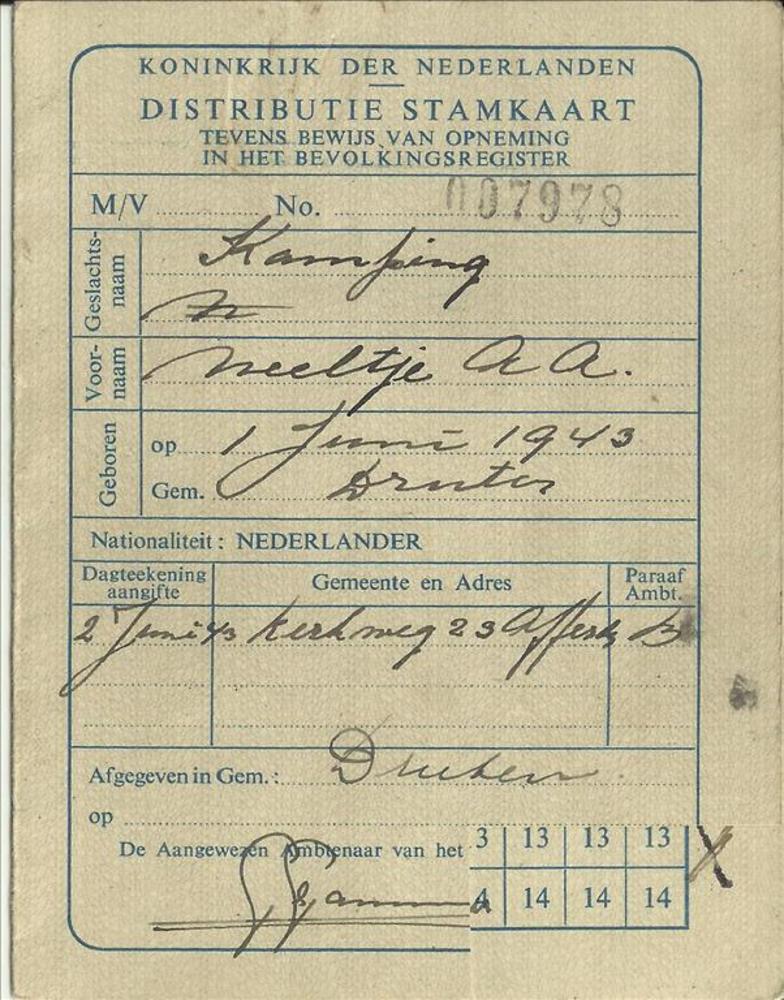 KONINKRIJK DER NEDERLANDEN
DISTRIBUTIE STAMKAART
TEVENS BEWIJS VAN OPNEMING
IN HET BEVOLKINGSREGISTER
M/V No. 007978
Geslachts-
naam
Kamping
Voor-
naam
Neeltje A A.
Geboren
op 1 Juni 1943
Gem. Druten
Nationaliteit: NEDERLANDER
Dagteekening
aangifte
Gemeente en Adres
Paraaf
Ambt.
2 Juni 43 Kerkweg 23 Afferd B
Afgegeven in Gem.: Druten
op
De Aangewezen Ambtenaar van het
3 13 13 13
4 14 14 14
X